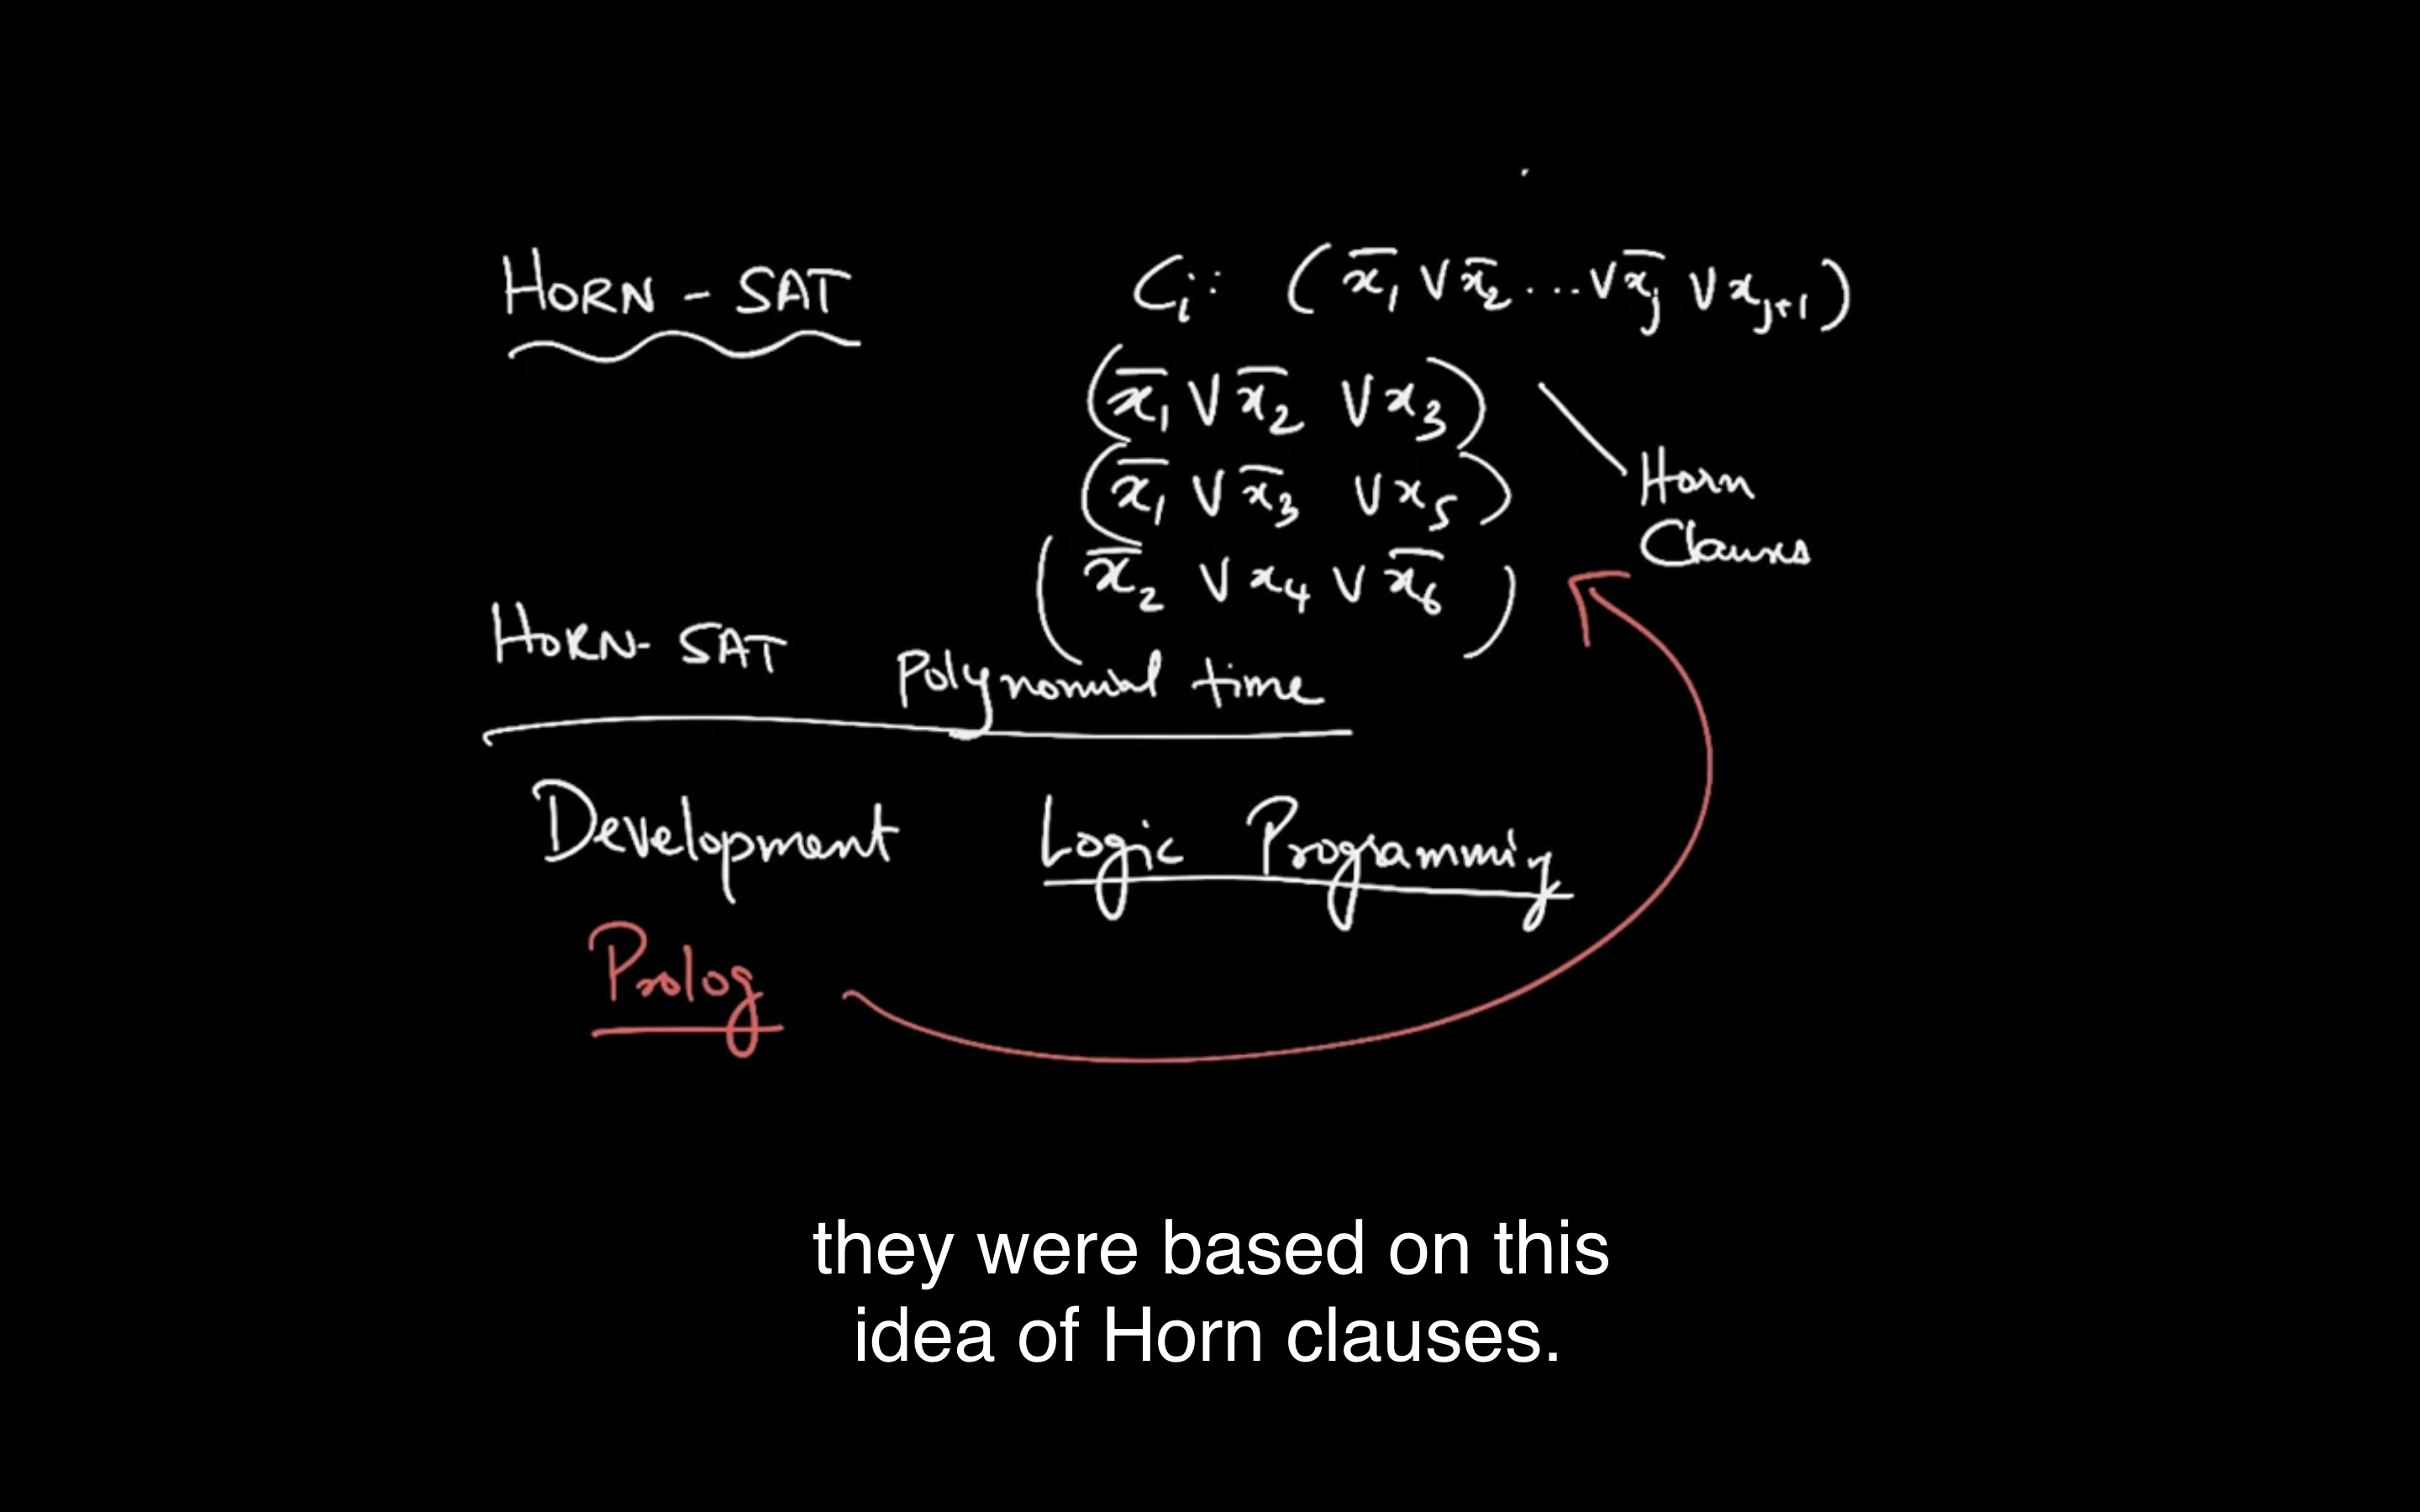 HORN - SAT
Cᵢ: (x̅₁ ∨ x̅₂ ... ∨ x̅ⱼ ∨ xⱼ₊₁)
(x̅₁ ∨ x̅₂ ∨ x₃)
(x̅₁ ∨ x̅₃ ∨ x₅)
Horn
Clauses
(x̅₂ ∨ x₄ ∨ x̅₆)
HORN- SAT Polynomial time
Development Logic Programming
Prolog
they were based on this
idea of Horn clauses.